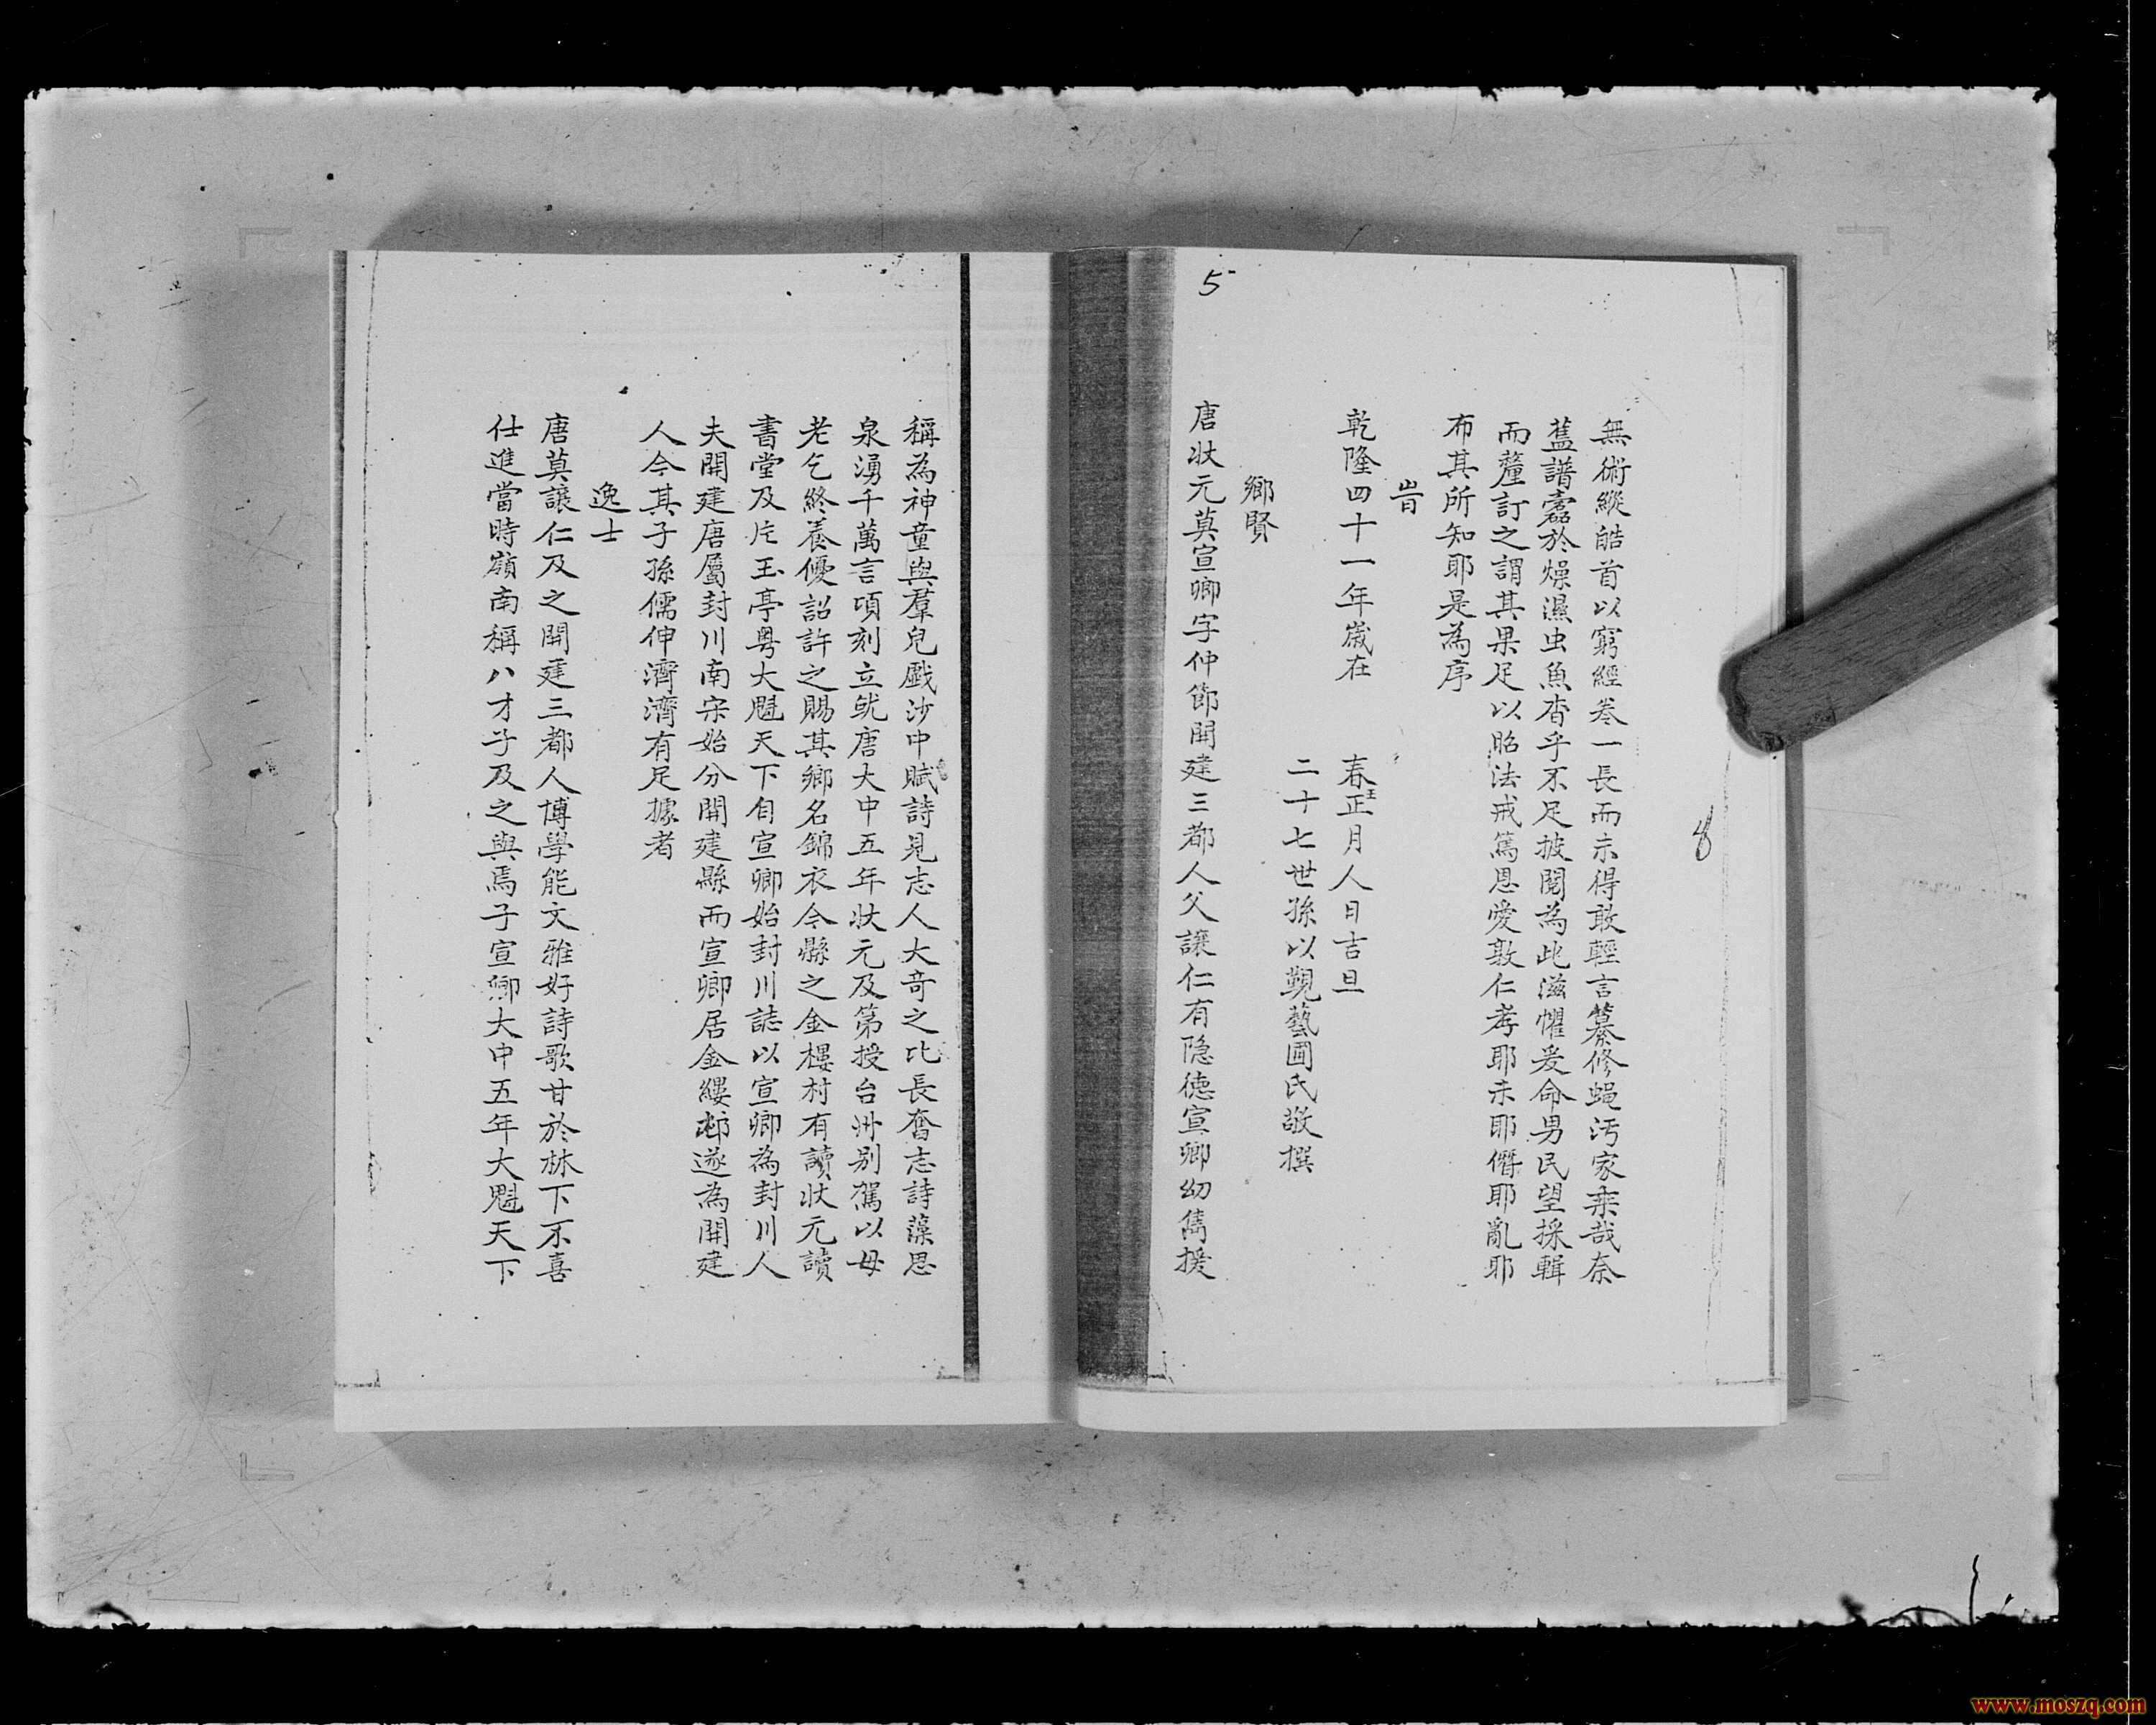 8
無術縱皓首以窮經卷一長而未得敢輕言纂修蝇汚家乗哉奈
舊譜蠹於燥濕虫魚杳乎不足披閱為此滋懼爰命男民望採輯
而釐訂之謂其果足以昭法戒篤恩愛敦仁孝耶未耶僭耶亂耶
布其所知耶是為序
旹
乾隆四十一年歲在 春王正月人日吉旦
二十七世孫以觀藝圃氏敬撰
鄉賢
5
唐状元莫宣卿字仲節開建三都人父讓仁有隐德宣卿幼雋援
稱為神童與羣兒戲沙中賦詩見志人大奇之比長奮志詩藻思
泉湧千萬言頃刻立就唐大中五年状元及第授台州别駕以母
老乞終養優詔許之賜其鄉名錦衣今縣之金樓村有讀状元讀
書堂及片玉亭粤大魁天下自宣卿始封川誌以宣卿為封川人
夫開建唐屬封川南宋始分開建縣而宣卿居金縷邨遂為開建
人今其子孫儒伸濟濟有足據者
逸士
唐莫讓仁及之開建三都人博學能文雅好詩歌甘於林下不喜
仕進當時嶺南稱八才子及之與焉子宣卿大中五年大魁天下
www.moszq.com